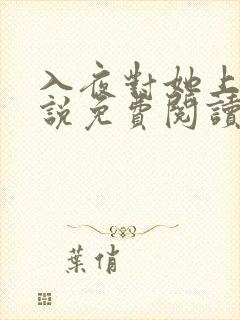 入夜對她上
說免費閱讀
葉俏